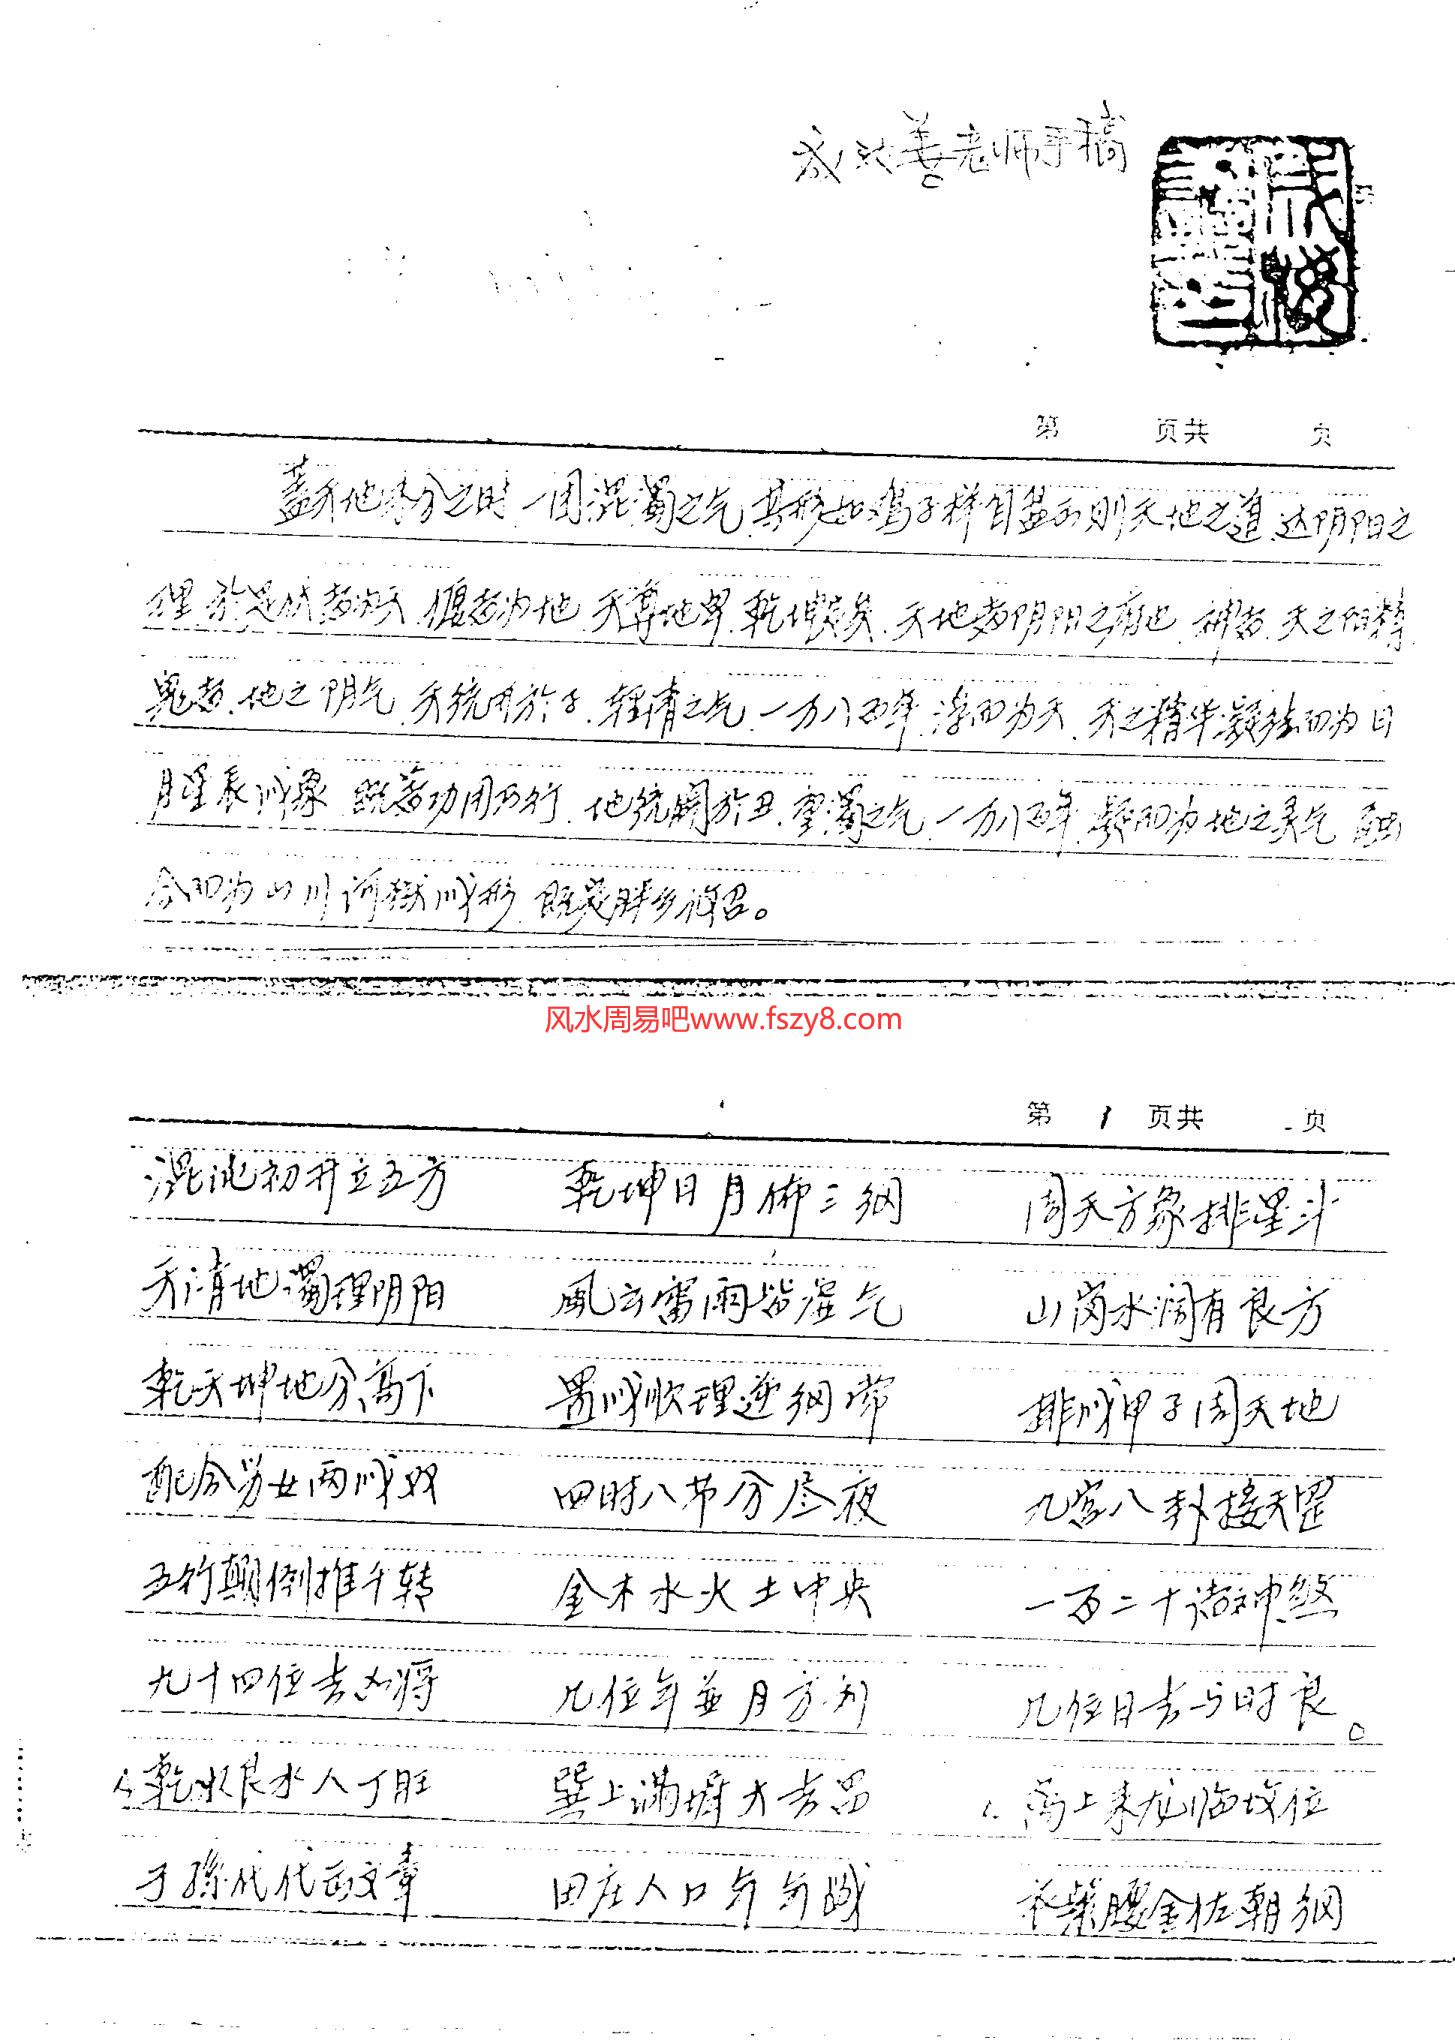 老师手稿
第 页共 页
盖天地未分之时 一团混濁之气 其形如鸡子样 则天地之道 达阴阳之
理 於是 者为天 偃者为地 天尊地卑 乾坤定矣 天地者阴阳之 也 神者 天之阳精
鬼者 地之阴气 天统开於子 轻清之气 一万八百年 浮而为天 天之精华凝结而为日
月星辰成象 既著功用五行 地统闢於丑 重濁之气 一万八百年 凝而为地之灵气 融
合而为山川河嶽成形 既
风水周易吧www.fszy8.com
第 1 页共 页
混沌初开立五方 乾坤日月佈三纲 周天方象排星斗
天清地濁理阴阳 風云雷雨皆濕气 山岗水濶有良方
乾天坤地分高下 置成顺理逆纲常 排成甲子周天地
配合男女两成双 四时八节分昼夜 九宫八卦接天罡
五行颠倒推千转 金木水火土中央 一百二十诸神煞
九十四位吉凶将 几位年並月方利 几位日吉与时良。
乾水艮水人丁旺 巽上满塘大吉昌 离上来龙临坟位
子孫代代出文章 田庄人口年年盛 衣紫腰金佐朝纲